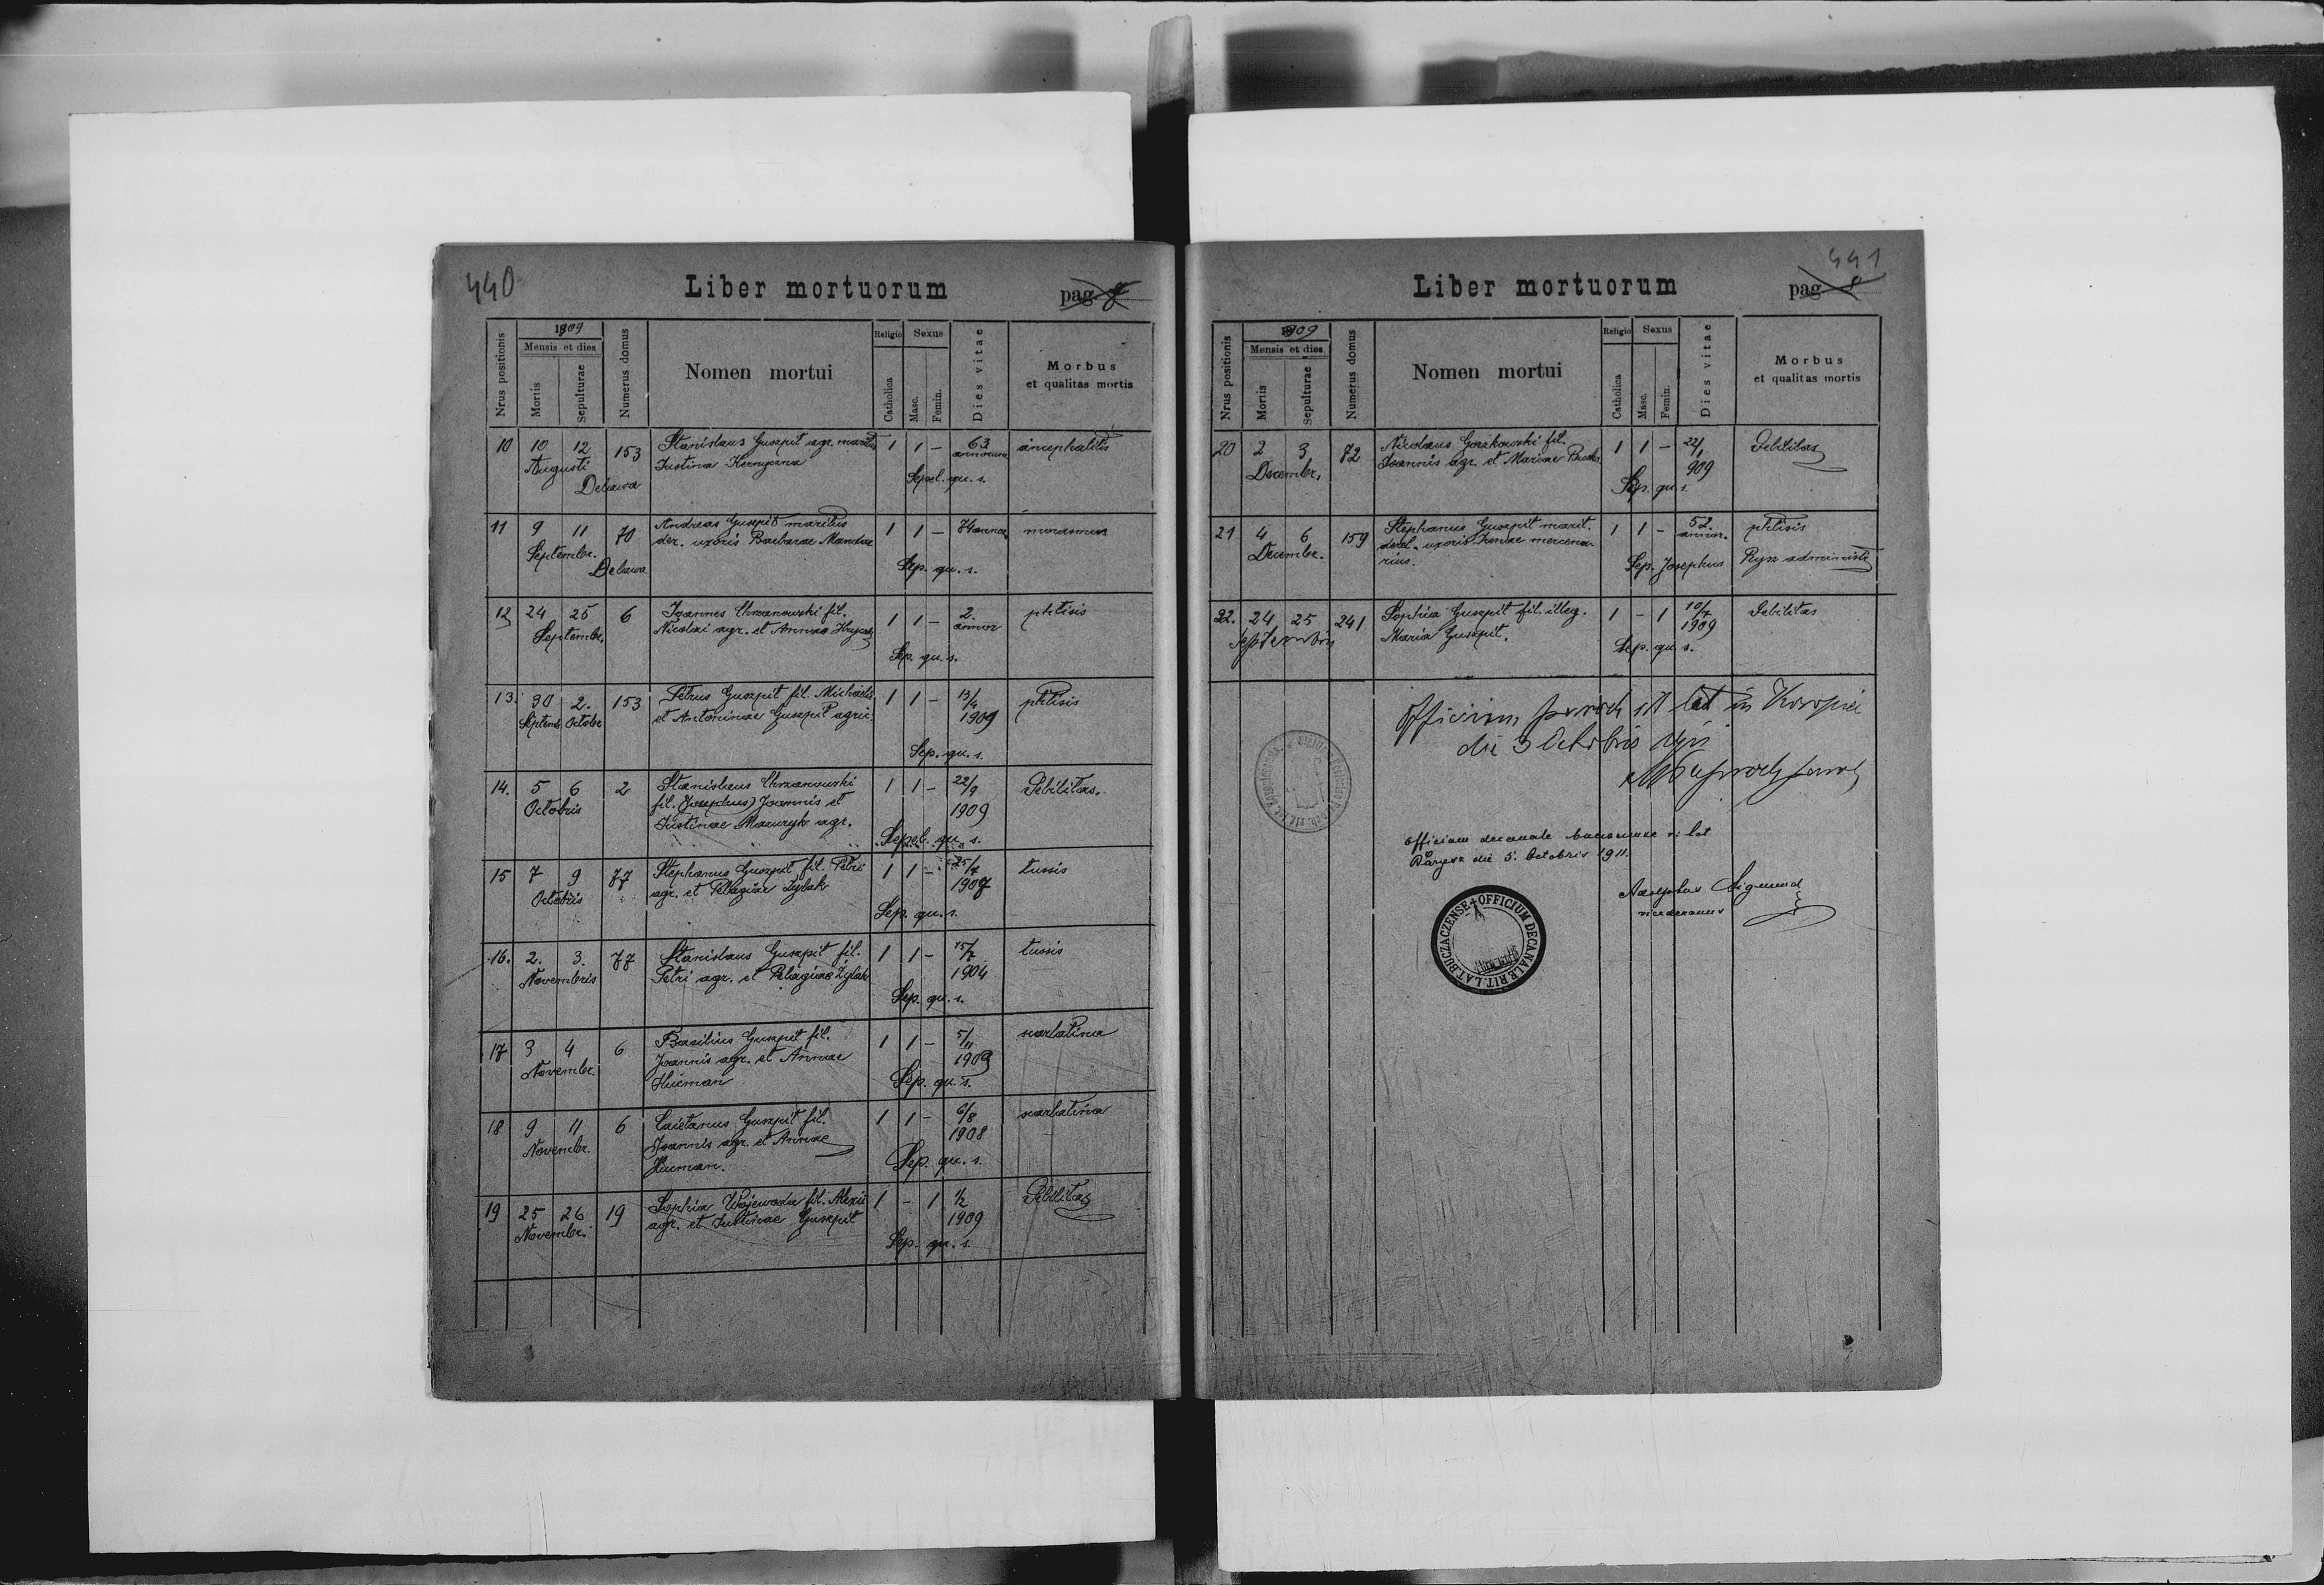 440
Liber mortuorum
pag 7
Nrus positionis
1909
Mensis et dies
Mortis
Sepulturae
Numerus domus
Nomen mortui
Religio
Catholica
Sexus
Masc.
Femin.
Dies vitae
Morbus
et qualitas mortis
10 10 12 153 Stanislaus Guszpit agr. maritus 1 1 – 63 ancephalitis
Augusti Justina annorum
Delawa Sepel. qu. s.
11 9 11 70 Andreas Guszpit maritus 1 1 – 74 annor. marasmus
Septembr. der. uxoris Barbarae
Delawa Sep. qu. s.
12 24 25 6 Joannes Chrzanowski fil. 1 1 – 2. phtisis
Septembr. Nicolai agr. et Annae annor
Sep. qu. s.
13. 30 2. 153 Petrus Guszpit fil. Michaelis 1 1 – 13/4 phtisis
Septemb Octobr et Antoninae Guszpit agric. 1909
Sep. qu. s.
14. 5 6 2 Stanislaus Chrzanowski 1 1 – 22/9 Debilitas.
Octobris fil. (Josephus) Joannis et 1909
Justinae Mazuryk agr.
Sepel. qu. s.
15 7 9 77 Stephanus Guszpit fil. Petri 1 1 – 25/7 tussis
Octobris agr. et Pellagiae Zylak 1907
Sep. qu. s.
16. 2. 3. 77 Stanislaus Guszpit fil. 1 1 – 15/7 tussis
Novembris Petri agr. et Pelagiae Zylak 1904
Sep. qu. s.
17 3 4 6 Basilius Guszpit fil. 1 1 – 5/11 scarlatina
Novembr. Joannis agr. et Annae 1903
Hucman Sep. qu. s.
18 9 11 6 Caietanus Guszpit fil. 1 1 – 6/8 scarlatina
Novembr. Joannis agr. et Annae 1908
Hucman. Sep. qu. s.
19 25 26 19 Sophia Wojewoda fil. Alexii 1 – 1 1/2 Debilitas
Novembr. agr. et Justinae Guszpit 1909
Sep. qu. s.
441
Liber mortuorum
pag 8
Nrus positionis
1909
Mensis et dies
Mortis
Sepulturae
Numerus domus
Nomen mortui
Religio
Catholica
Sexus
Masc.
Femin.
Dies vitae
Morbus
et qualitas mortis
20 2 3 72 Nicolaus Gorzkowski fil. 1 1 – 22/1 Debilitas
Decembr. Joannis agr. et Mariae 909
Sep. qu. s.
21 4 6 159 Stephanus Guszpit marit. 1 1 – 52. phtisis
Decembr. uxoris Irenae mercena- annor.
rius. Sep. Josephus Ryz administr
22. 24 25 241 Sophia Guszpit fil. illeg. 1 – 1 10/7 Debilitas
Septembris Maria Guszpit. 1909
Sep. qu. s.
Officium paroch rit lat in Koropiec
die 3 Octobris 1911
Officium decanale Buczaczense r. lat
die 5. Octobris 1911.
Adolphus Sigmund
vicedecanus
OFFICIUM DECANALE RIT. LAT. BUCZACZENSE